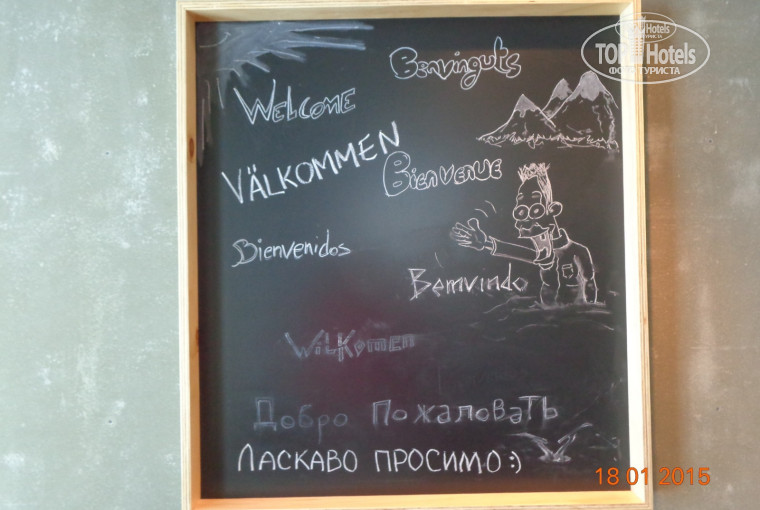 Benvinguts
Welcome
VÄLKOMMEN
Bienvenue
Bienvenidos
Bemvindo
Wilkomen
Добро Пожаловать
Ласкаво просимо :)
TOP Hotels
ФОТО ТУРИСТА
18 01 2015